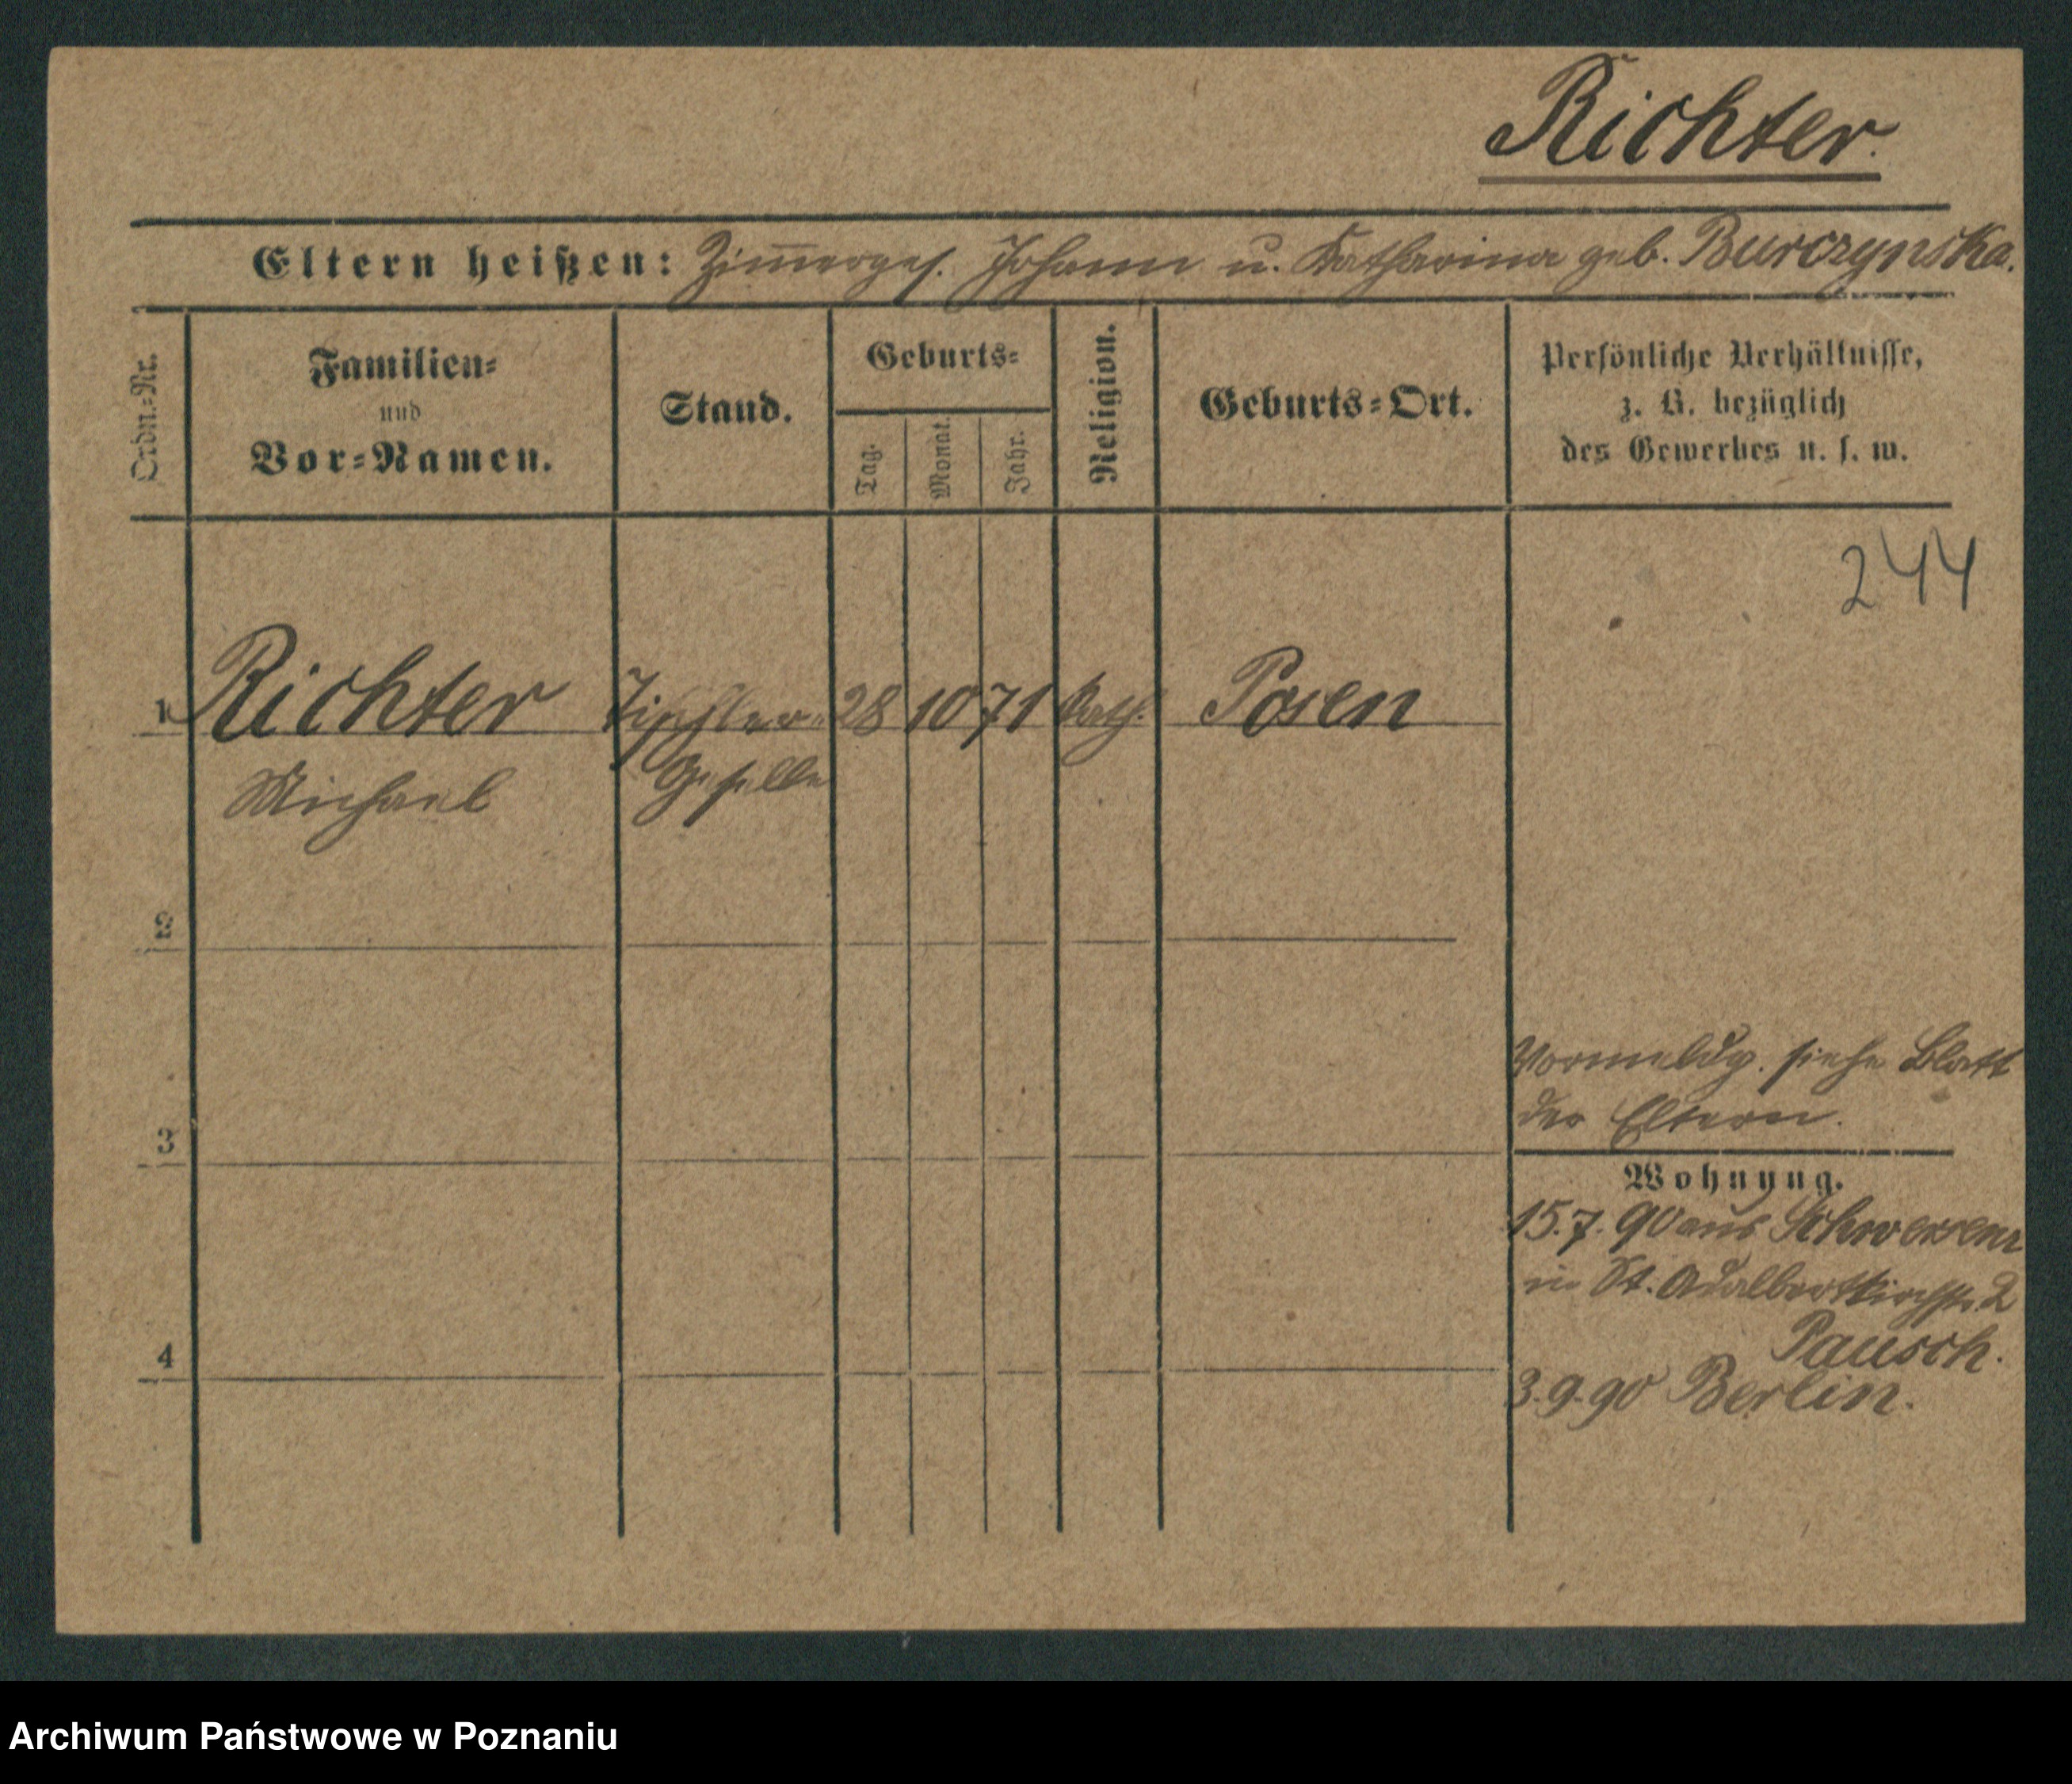 Richter.
Eltern heißen: Zimmerges. Johann u. Katharina geb. Burczynska.
Ordn.-Nr.
Familien-
und
Vor-Namen.
Stand.
Geburts-
Tag.
Monat.
Jahr.
Religion.
Geburts-Ort.
Persönliche Verhältnisse,
z. B. bezüglich
des Gewerbes u. s. w.
244
1 Richter Tischler- 28 10 71 kath. Posen
Michael Geselle
2
3
4
Vormeldg. siehe Blatt
der Eltern.
Wohnung.
15.7.90 aus Schwersenz
in St. Adalbertkirchstr. 2
Pausch.
3.9.90 Berlin.
Archiwum Państwowe w Poznaniu